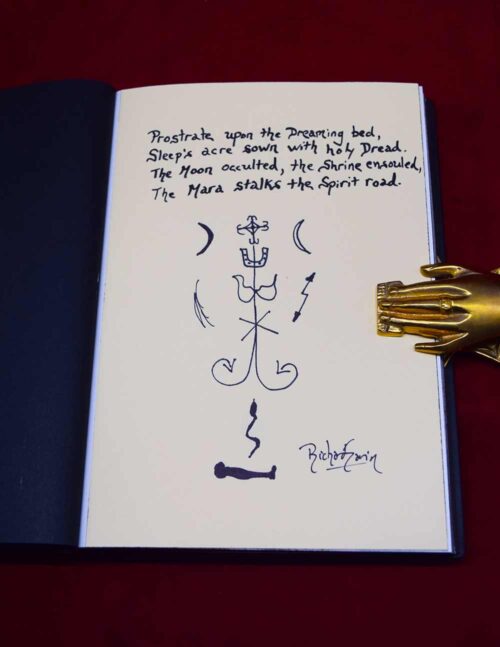 Prostrate upon the Dreaming bed,
Sleep's acre sown with holy Dread.
The Moon occulted, the Shrine ensouled,
The Mara stalks the Spirit road.
Richard Gavin